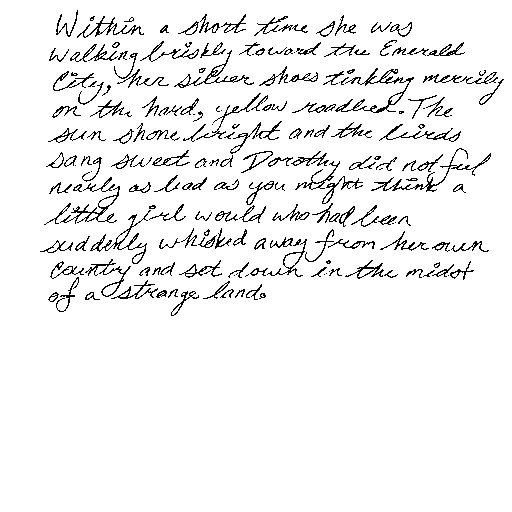 Within a short time she was
walking briskly toward the Emerald
City, her silver shoes tinkling merrily
on the hard, yellow roadbed. The
sun shone bright and the birds
sang sweet and Dorothy did not feel
nearly as bad as you might think a
little girl would who had been
suddenly whisked away from her own
country and set down in the midst
of a strange land.